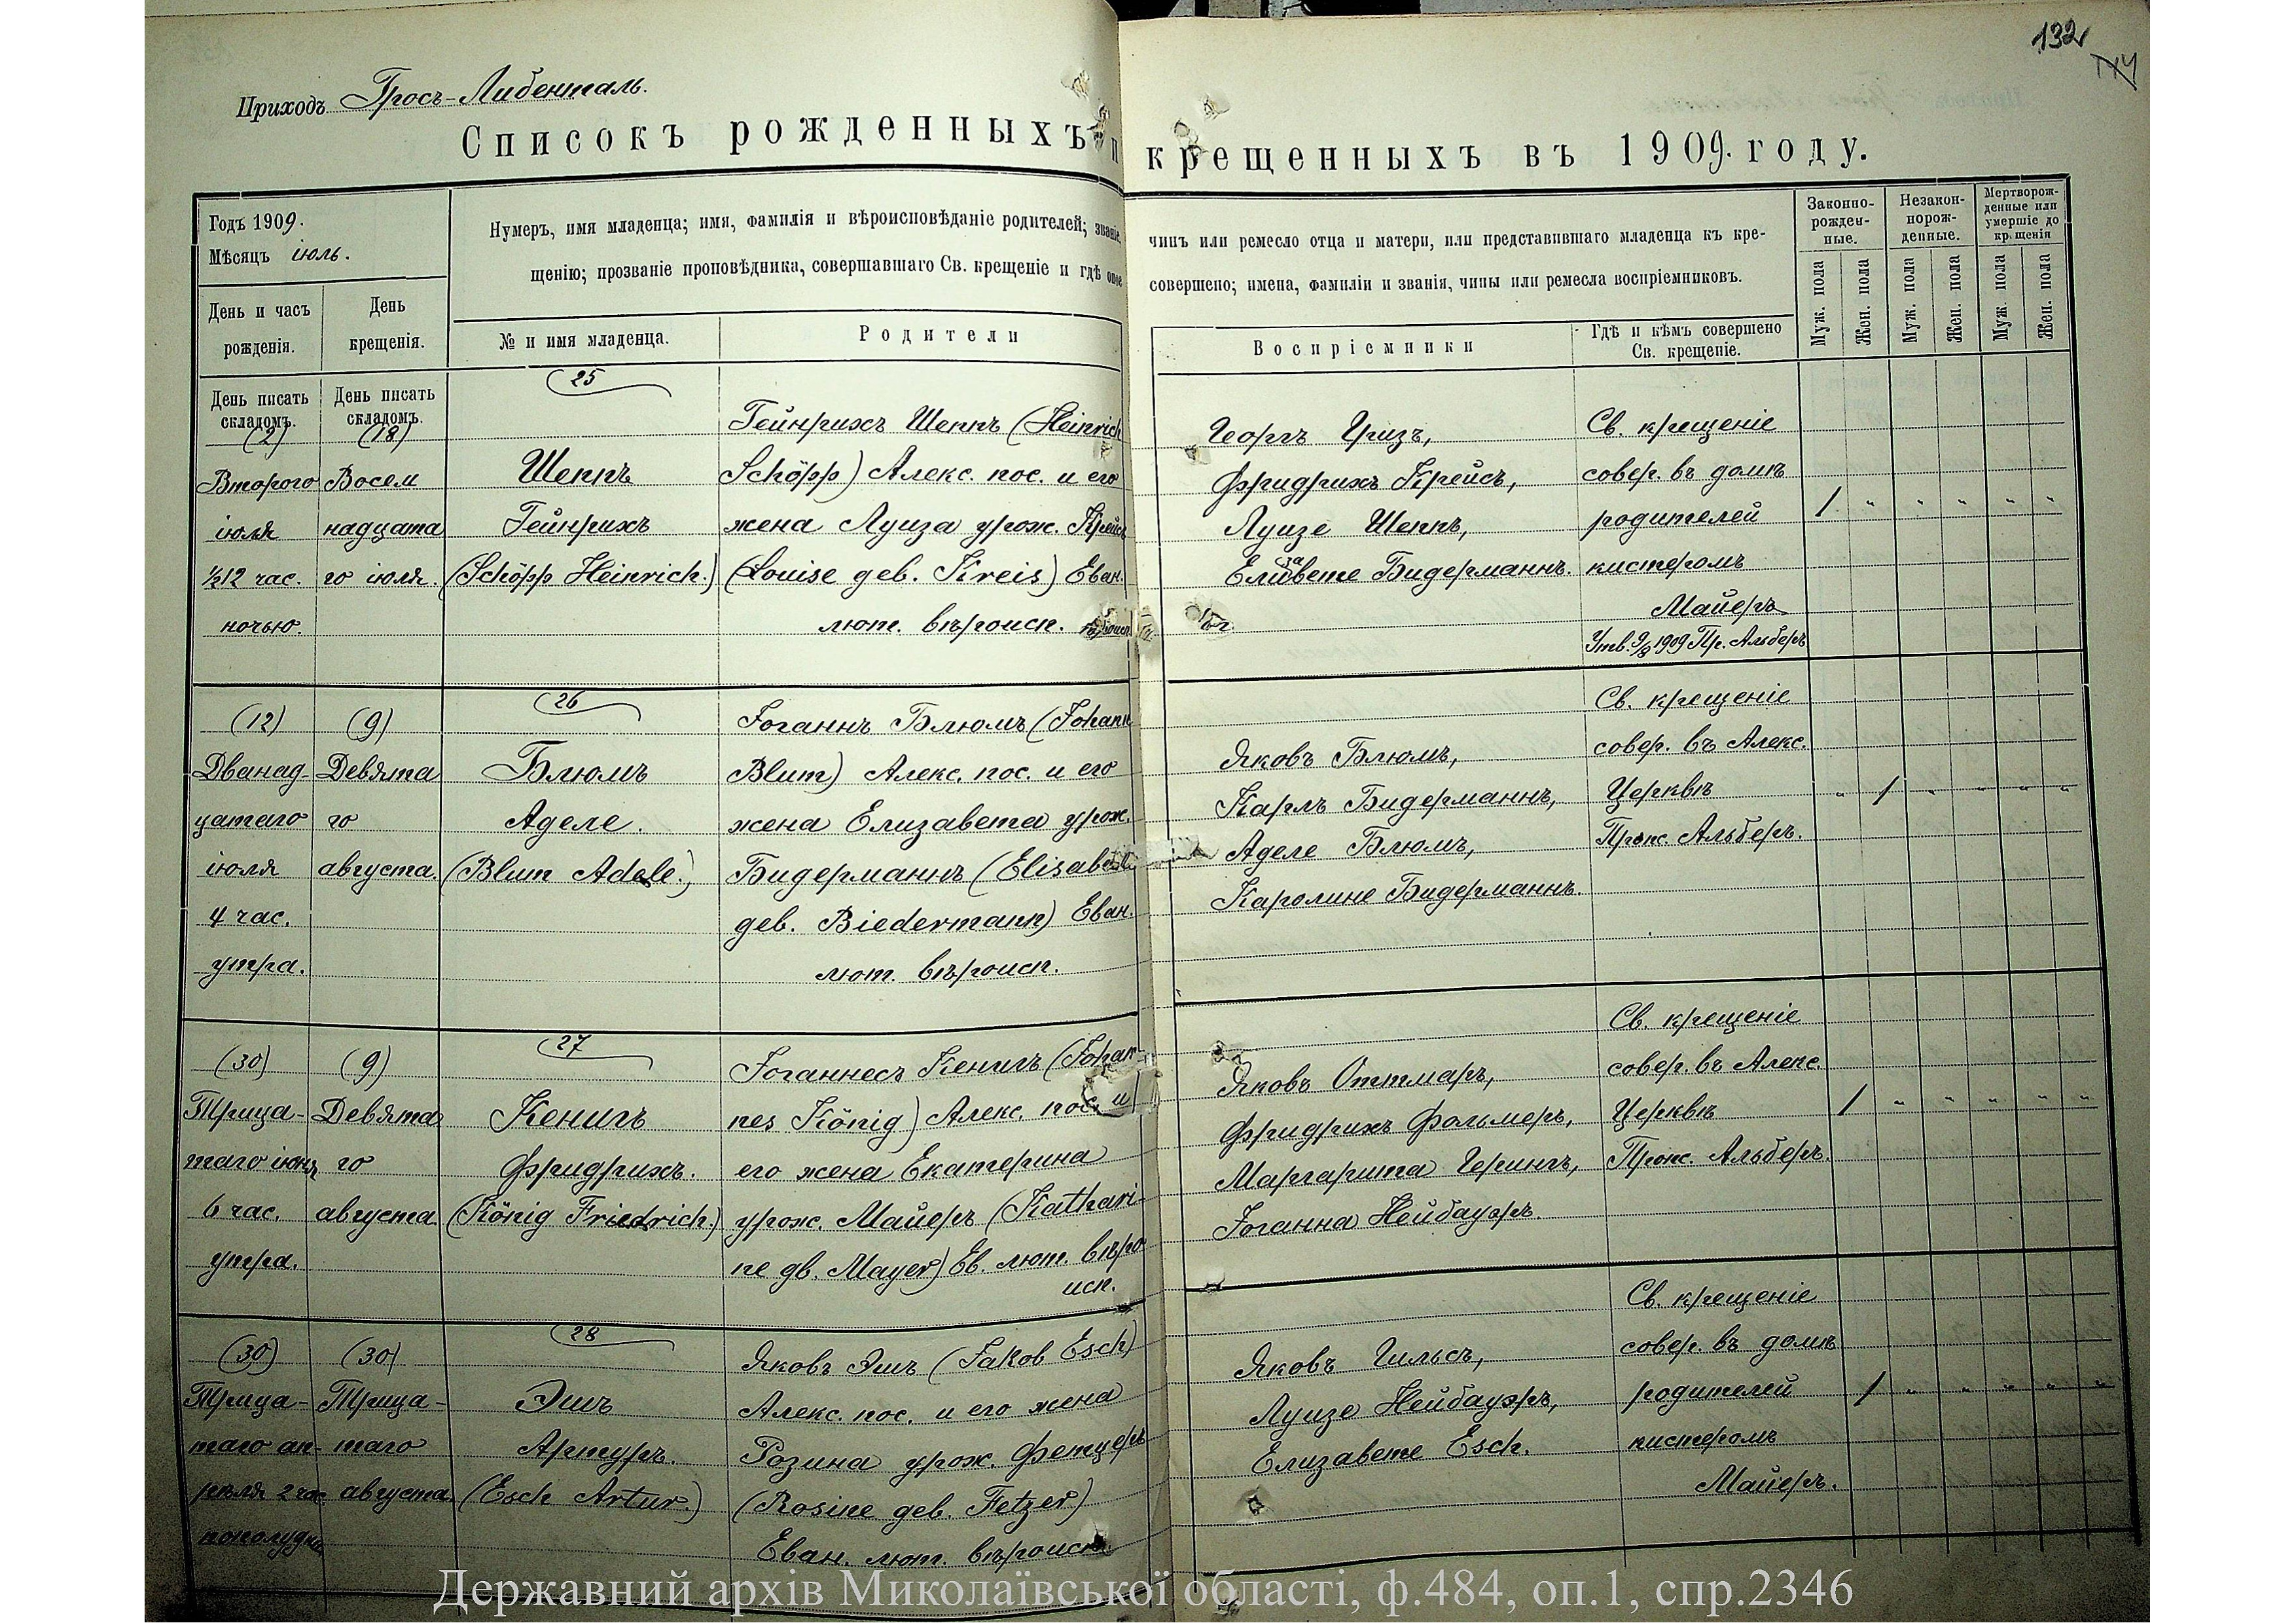 132
Приходъ Гросъ-Либенталь.
Списокъ рожденныхъ и крещенныхъ въ 1909. году.
Годъ 1909.
Мѣсяцъ іюль.
Нумеръ, имя младенца; имя, фамилія и вѣроисповѣданіе родителей; званіе, чинъ или ремесло отца и матери, или представившаго младенца къ кре-
щенію; прозваніе проповѣдника, совершавшаго Св. крещеніе и гдѣ оное совершено; имена, фамиліи и званія, чины или ремесла воспріемниковъ.
Законно-
рожден-
ные.
Незакон-
норож-
денные.
Мертворож-
денные или
умершіе до
крещенія
Муж. пола
Жен. пола
Муж. пола
Жен. пола
Муж. пола
Жен. пола
День и часъ
рожденія.
День
крещенія.
№ и имя младенца.
Родители
Воспріемники
Гдѣ и кѣмъ совершено
Св. крещеніе.
День писать
складомъ.
День писать
складомъ.
(2)
Второго
іюля
½12 час.
ночью.
(18)
Восем
надцата
го іюля.
25
Шеппъ
Гейнрихъ
(Schöpp Heinrich.)
Гейнрихъ Шеппъ (Heinrich
Schöpp) Алекс. пос. и его
жена Луиза урож. Крейсъ
(Louise geb. Kreis) Еван.
лют. вѣроисп.
Георгъ Гризъ,
Фридрихъ Крейсъ,
Луизе Шеппъ,
Елизавете Бидерманнъ.
Св. крещеніе
совер. въ домѣ
родителей
кистеромъ
Майеръ
Утв. 9/8 1909 Пр. Альберъ
/ " " " " "
(12)
Дванад-
цатаго
іюля
4 час.
утра.
(9)
Девята
го
августа.
26
Блюмъ
Аделе.
(Blum Adele.)
Іоганнъ Блюмъ (Johann
Blum) Алекс. пос. и его
жена Елизавета урож.
Бидерманнъ (Elisabet
геб. Biedermann) Еван.
лют. вѣроисп.
Яковъ Блюмъ,
Карлъ Бидерманнъ,
Аделе Блюмъ,
Каролине Бидерманнъ.
Св. крещеніе
совер. въ Алекс.
Церквѣ
Пропс. Альберъ.
" / " " " "
(30)
Трица-
таго іюня
6 час.
утра.
(9)
Девята
го
августа
27
Кенигъ
Фридрихъ.
(König Friedrich.)
Іоганнесъ Кенигъ (Johan-
nes König) Алекс. пос. и
его жена Екатерина
урож. Майеръ (Kathari-
ne гв. Mayer) Ев. лют. вѣро
исп.
Яковъ Оттмаръ,
Фридрихъ Фольмеръ,
Маргарита Герингъ,
Іоганна Нейбауэръ.
Св. крещеніе
совер. въ Алекс.
Церквѣ
Пропс. Альберъ.
/ " " " " "
(30)
Трица-
таго ап-
рѣля 2 час.
пополудни
(30)
Трица-
таго
августа.
28
Эшъ
Артуръ.
(Esch Artur.)
Яковъ Эшъ (Jakob Esch)
Алекс. пос. и его жена
Розина урож. Фетцеръ
(Rosine geb. Fetzer)
Еван. лют. вѣроисп.
Яковъ Гильсъ,
Луизе Нейбауэръ,
Елизавете Esch.
Св. крещеніе
совер. въ домѣ
родителей
кистеромъ
Майеръ.
/ " " " " "
Державний архів Миколаївської області, ф.484, оп.1, спр.2346